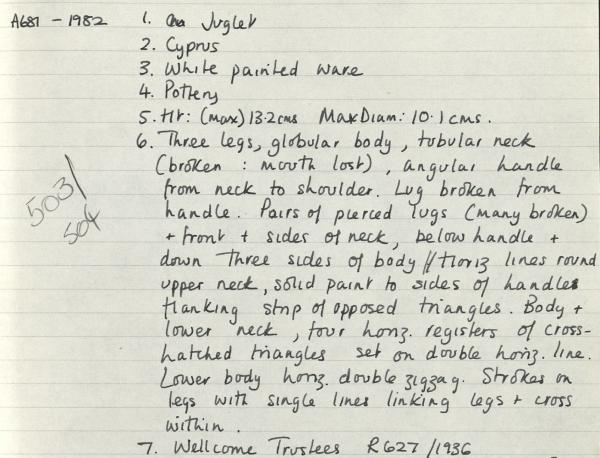 A687 - 1982
1. Juglet
2. Cyprus
3. White painted ware
4. Pottery
5. Ht: (max) 13.2cms Max Diam: 10.1cms.
6. Three legs, globular body, tubular neck
(broken : mouth lost), angular handle
from neck to shoulder. Lug broken from
handle. Pairs of pierced lugs (many broken)
+ front + sides of neck, below handle +
down three sides of body // Horiz lines round
upper neck, solid paint to sides of handle
flanking strip of opposed triangles. Body +
lower neck, four horiz. registers of cross-
hatched triangles set on double horiz. line.
Lower body horiz. double zigzag. Strokes on
legs with single lines linking legs + cross
within.
7. Wellcome Trustees R627/1936
503/
504